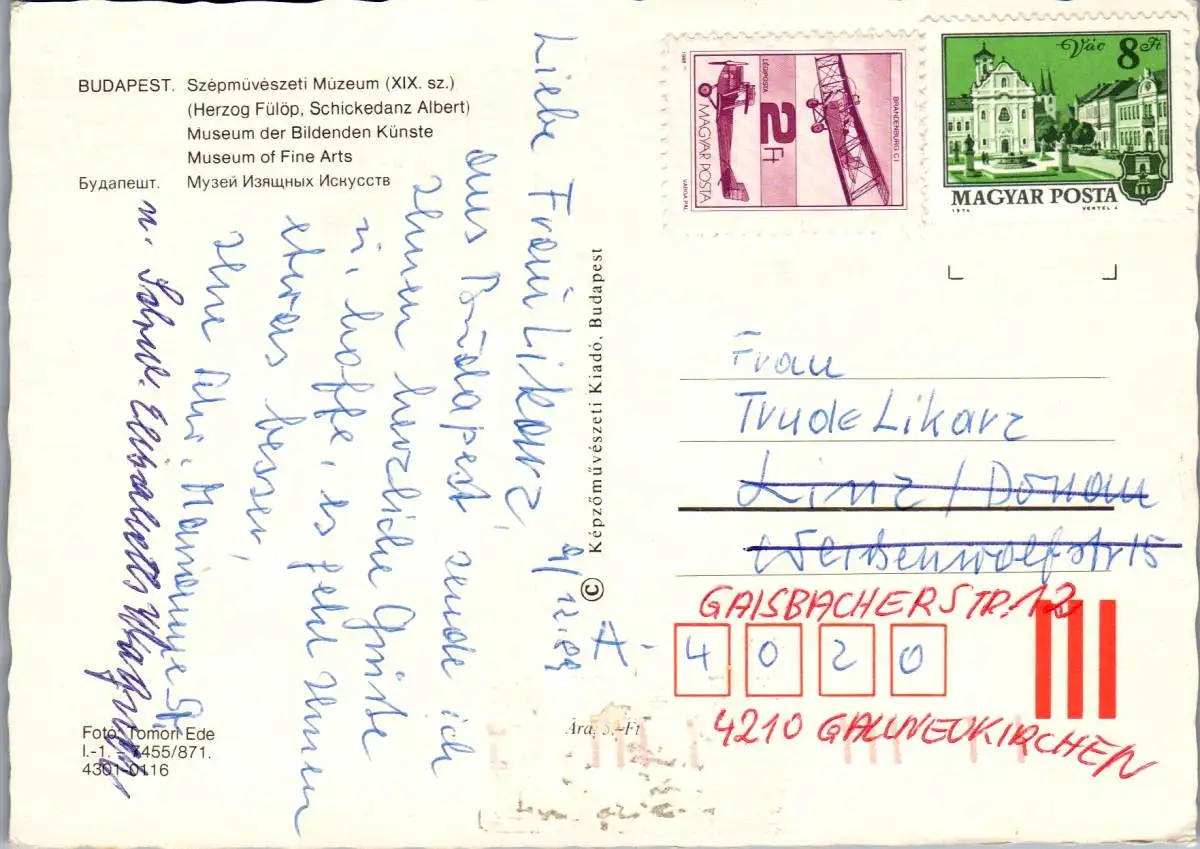 BUDAPEST. Szépművészeti Múzeum (XIX. sz.)
(Herzog Fülöp, Schickedanz Albert)
Museum der Bildenden Künste
Museum of Fine Arts
Будапешт. Музей Изящных Искусств
Liebe Frau Likarz,
9/12.89
aus Budapest sende ich
Ihnen herzliche Grüße
u. hoffe, es geht Ihnen
etwas besser,
Ihre Marianne
u. Schw. Elisabeth
Foto: Tomori Ede
I.-1. - 7455/871.
4301-0116
© Képzőművészeti Kiadó, Budapest
Ára: 3,-Ft
1988
LÉGIPOSTA
2 Ft
MAGYAR POSTA
BRANDENBURG C I
VARGA PÁL
Vác 8 Ft
MAGYAR POSTA
1974 VERTEL J.
Frau
Trude Likarz
Linz / Donau
Weißenwolfstr 15
GAISBACHERSTR. 12
A - 4 0 2 0
4210 GALLNEUKIRCHEN